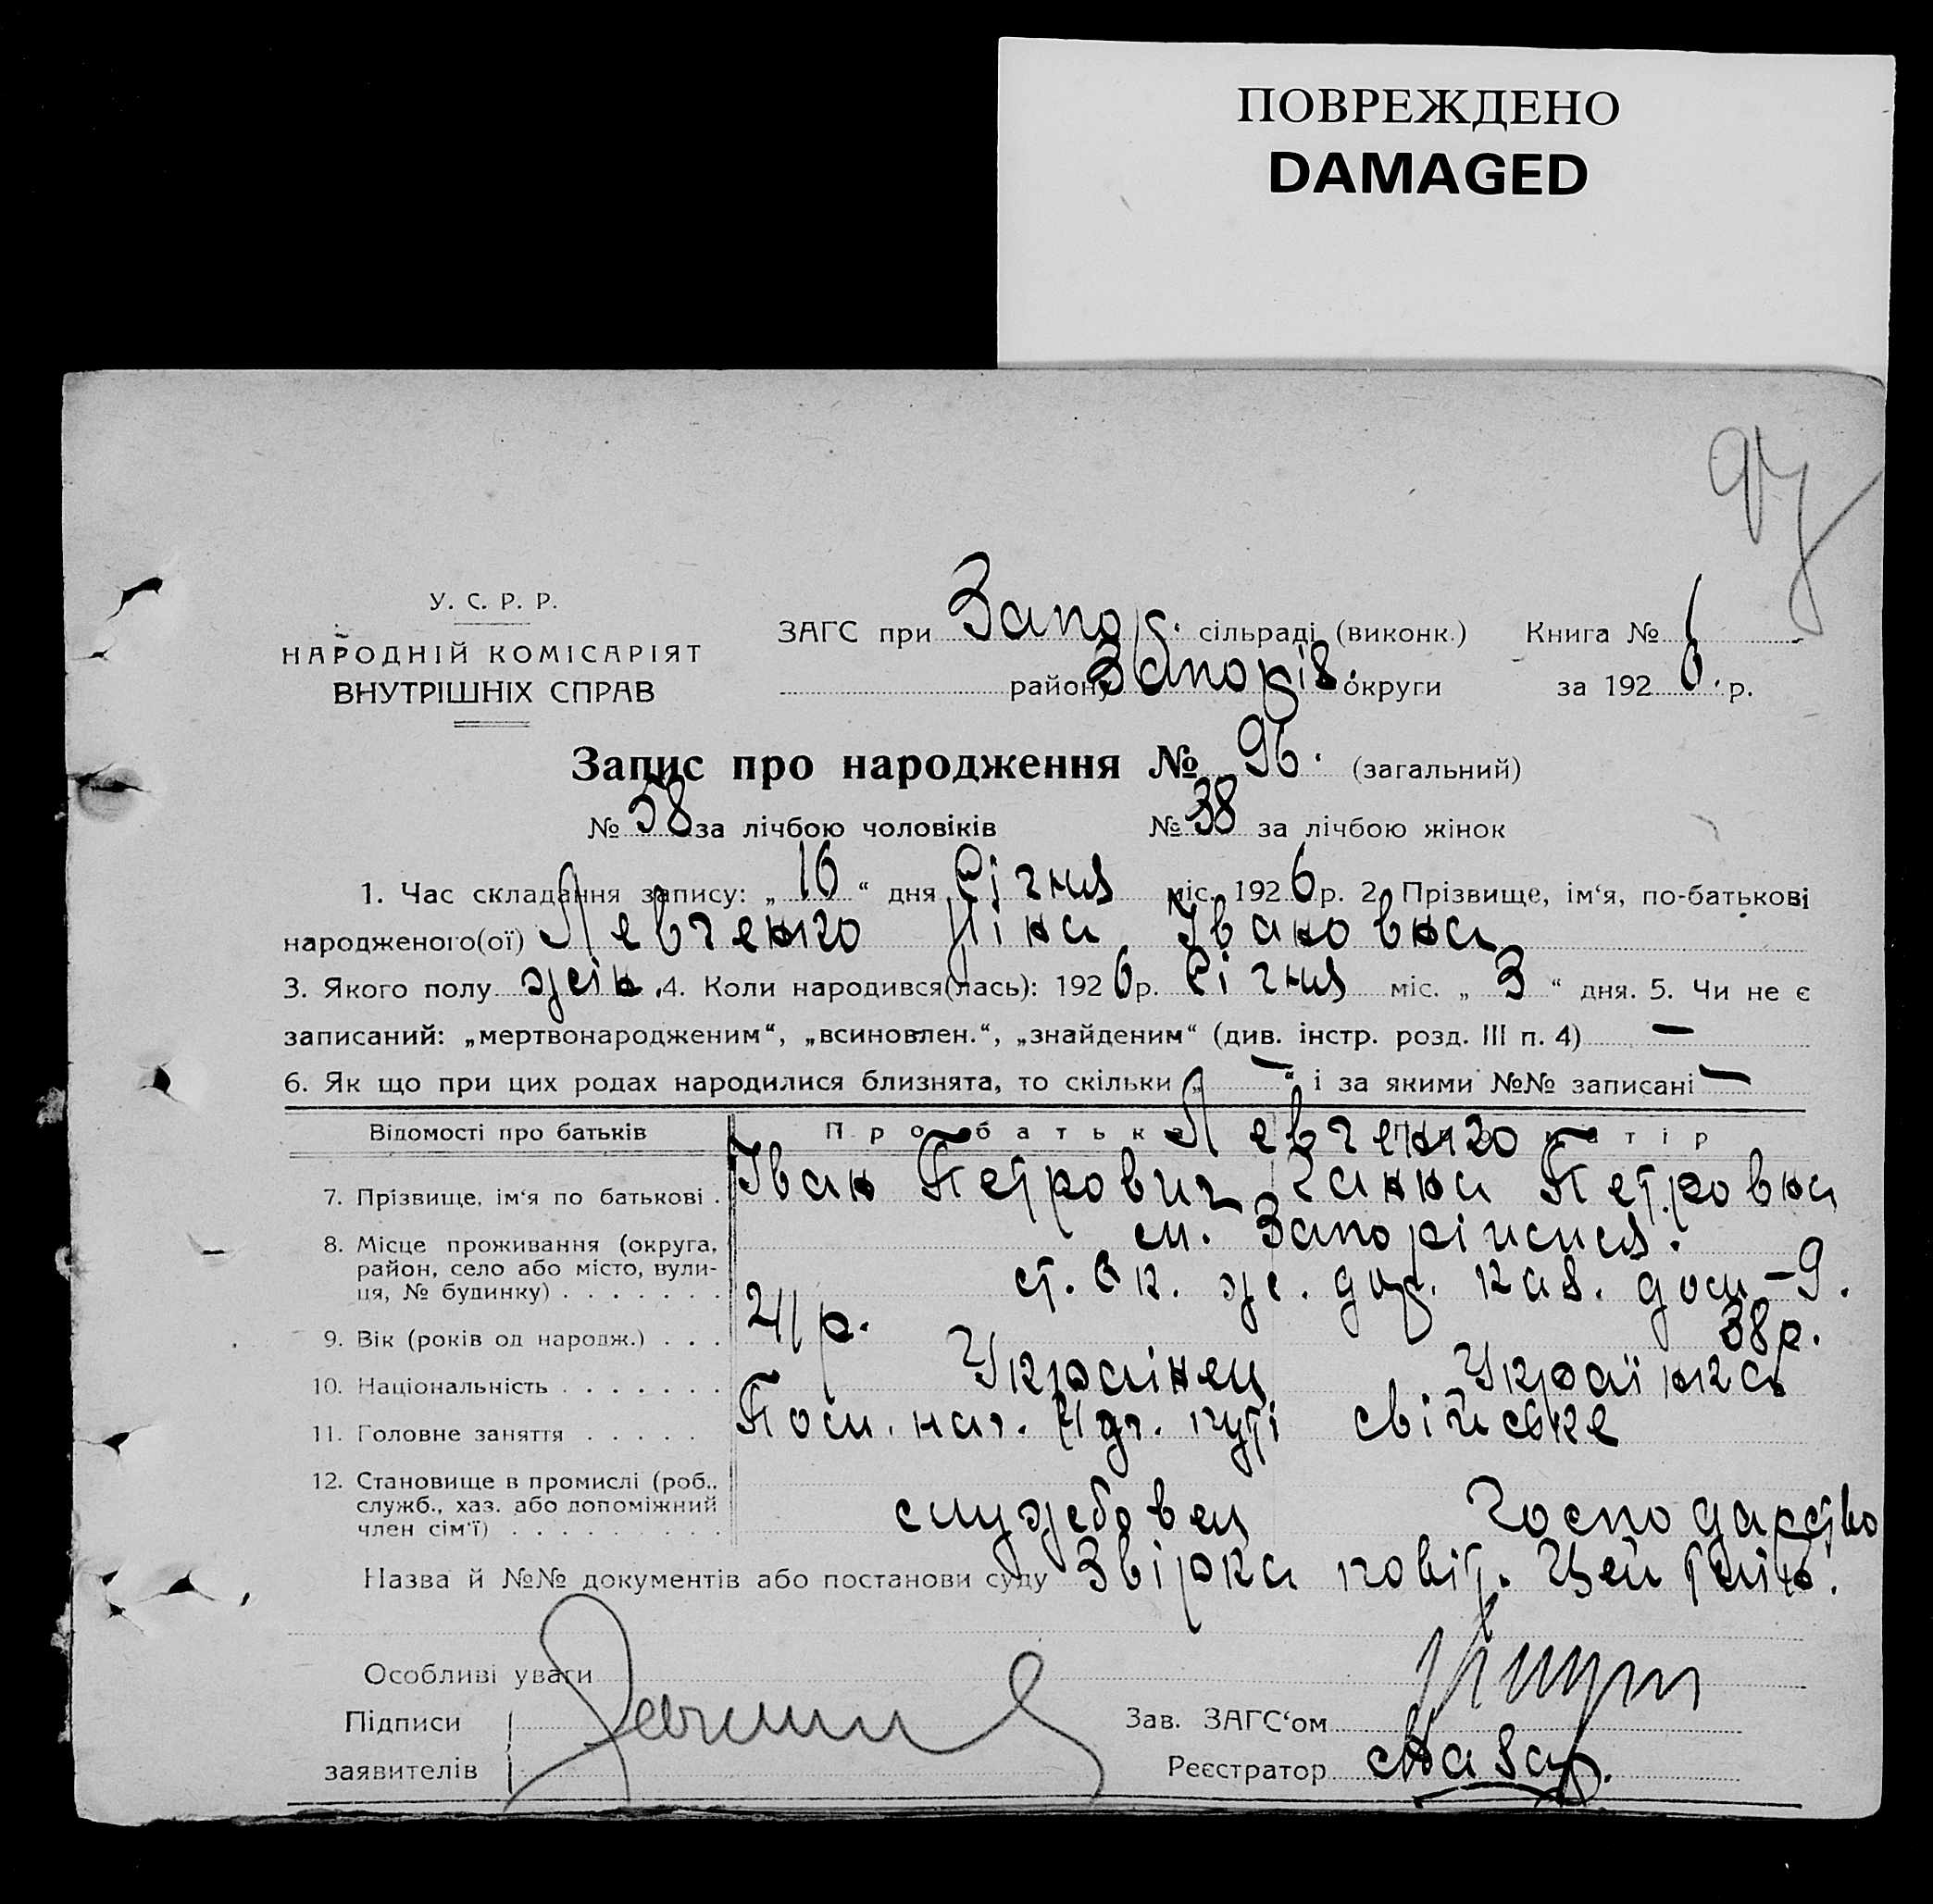 ПОВРЕЖДЕНО
DAMAGED
97
У. С. Р. Р.
НАРОДНІЙ КОМІСАРІЯТ
ВНУТРІШНІХ СПРАВ
ЗАГС при Запор. сільраді (виконк.) Книга №
району Запоріз. округи за 1926. р.
Запис про народження № 96. (загальний)
№ 58 за лічбою чоловіків № 38 за лічбою жінок
1. Час складання запису: „16“ дня Січня міс. 1926 р. 2. Прізвище, ім‘я, по-батькові
народженого(ої) Левченко Ніна Івановна
3. Якого полу жін. 4. Коли народився(лась): 1926 р. Січня міс. „3“ дня. 5. Чи не є
записаний: „мертвонародженим“, „всиновлен.“, „знайденим“ (див. інстр. розд. III п. 4) —
6. Як що при цих родах народилися близнята, то скільки „—“ і за якими №№ записані —
Відомості про батьків Про батька Левченко матір
7. Прізвище, ім‘я по батькові . Іван Петрович Ганна Петровна
8. Місце проживання (округа, район, село або місто, вулиця, № будинку) . . . . . . . м. Запоріжжя.
ст. ж. дор. каз. дом – 9.
9. Вік (років од народж.) . . . 41 р. 38 р.
10. Національність . . . . . . . Українец Українка
11. Головне заняття . . . . . Пом. нач. путі свійське
12. Становище в промислі (роб., служб., хаз. або допоміжний член сім‘ї) . . . . . . . . . службовец Господарство
Назва й №№ документів або постанови суду Звірка
Особливі уваги
Підписи
заявителів
Зав. ЗАГС‘ом
Реєстратор Назар.